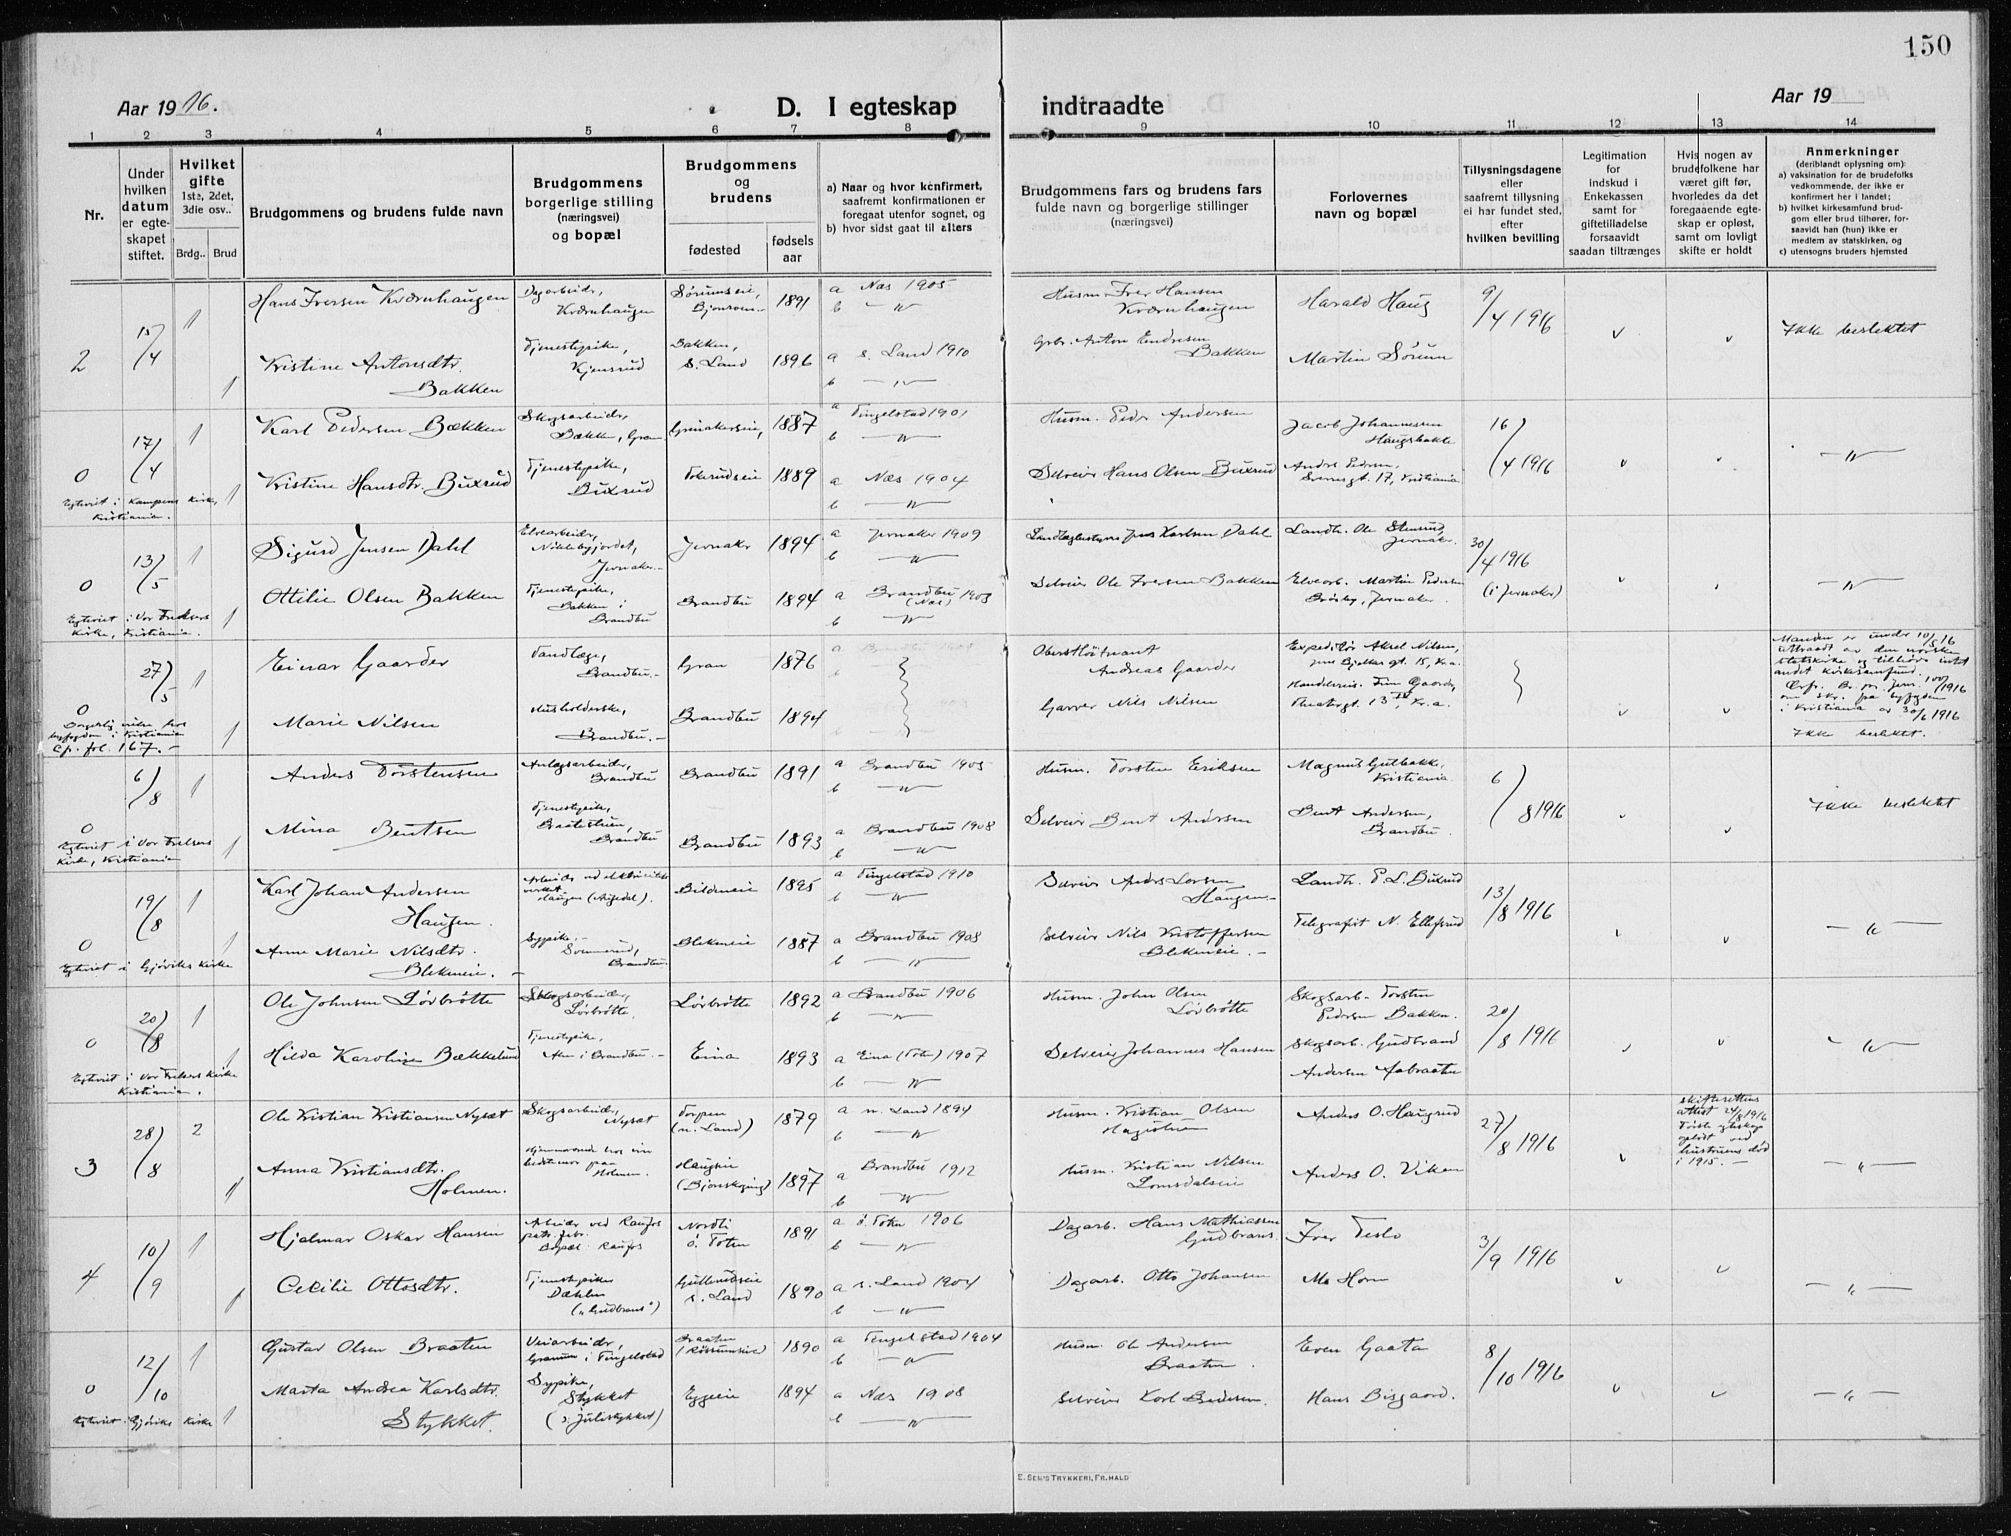 150
Aar 19 16.
D. I egteskap indtraadte
Aar 19
1 2 3 4 5 6 7 8 9 10 11 12 13 14
Nr.
Under
hvilken
datum
er egte-
skapet
stiftet.
Hvilket
gifte
1ste, 2det,
3die osv..
Brdg.. Brud
Brudgommens og brudens fulde navn
Brudgommens
borgerlige stilling
(næringsvei)
og bopæl
Brudgommens
og
brudens
fødested
fødsels
aar
a) Naar og hvor konfirmert,
saafremt konfirmationen er
foregaat utenfor sognet, og
b) hvor sidst gaat til alters
Brudgommens fars og brudens fars
fulde navn og borgerlige stillinger
(næringsvei)
Forlovernes
navn og bopæl
Tillysningsdagene
eller
saafremt tillysning
ei har fundet sted,
efter
hvilken bevilling
Legitimation
for
indskud i
Enkekassen
samt for
giftetilladelse
forsaavidt
saadan tiltrænges
Hvis nogen av
brudefolkene har
været gift før,
hvorledes da det
foregaaende egte-
skap er opløst,
samt om lovligt
skifte er holdt
Anmerkninger
(deriblandt oplysning om):
a) vaksination for de brudefolks
vedkommende, der ikke er
konfirmert her i landet;
b) hvilket kirkesamfund brud-
gom eller brud tilhører, for-
saavidt han (hun) ikke er
medlem av statskirken, og
c) utensogns bruders hjemsted
2 15/4 1 Hans Iversen Kværnhaugen Dagarbeider, Kværnhaugen 1891 a Næs 1905 b — " — Husm. Iver Hansen Kværnhaugen Harald Haug 9/4 1916 Ikke beslektet
1 Kristine Antonsdtr. Bakken Tjenestepike, Kjensrud Bakken, s. Land 1896 a s. Land 1910 b — " — Gbr. Anton Endresen Bakken Martin Sørum
0 17/4 1 Karl Pedersen Bækken Skogsarbeider, Bækken, Gran Grinakerseie, 1887 a Tingelstad 1901 b — " — Husm. Peder Andersen Jacob Johannessen Haugsbakke 16/4 1916 — " —
1 Kristine Hansdtr. Buxrud Tjenestepike, Buxrud 1889 a Næs 1904 b — " — Selveier Hans Olsen Buxrud Anders Pedersen, 17, Kristiania
Egteviet i Kampens Kirke, Kristiania.
0 13/5 1 Sigurd Jensen Dahl Elvearbeider, Jevnaker.- Jevnaker 1894 a Jevnaker 1909 b — " — Jens Karlsen Dahl Landh. Ole Stensrud, Jevnaker. 30/4 1916 (i Jevnaker) — " —
1 Ottilie Olsen Bakken Tjenestepike, Bakken i Brandbu Brandbu 1894 a Brandbu 1903 (Næs) b — " — Selveier Ole Iversen Bakken Elvearb. Martin Pedersen Brørby, Jevnaker.
Egteviet i Vor Frelsers Kirke, Kristiania.
0 27/5 1 Einar Gaarder Tandlæge, Brandbu.- Gran 1876 Oberstløitnant Andreas Gaarder Expeditør Aksel Nilsen, Jens Bjelkes gt. 15, Kr.a.
1 Marie Nilsen Husholderske, Brandbu.- Brandbu 1894 Garver Nils Nilsen Handelsreis. Finn Gaarder, Theatergt. 13 IV, Kr.a.
Borgerlig viet hos byfogden i Kristiania
Cp. fol. 167.-
Manden er under 10/5 16 uttraadt av den norske statskirke og tilhører intet andet kirkesamfund.
i Kristiania av 30/6 1916
Ikke beslektet.
0 6/8 1 Anders Torstensen Anlægsarbeider, Brandbu Brandbu 1891 a Brandbu 1905 b — " — Husm. Torsten Eriksen Magnus Gulbakke, Kristiania 6/8 1916 Ikke beslektet
1 Mina Bentsen Tjenestepike, Brandbu Brandbu 1893 a Brandbu 1908 b — " — Selveier Bent Andersen Bent Andersen, Brandbu.
Egteviet i Vor Frelsers Kirke, Kristiania
0 19/8 1 Karl Johan Andersen Haugen. Arbeider ved elektricitets verket. Haugen 1895 a Tingelstad 1910 b — " — Selveier Anders Larsen Haugen.- Landh. P. L. Buxrud 13/8 1916 — " —
1 Anne Marie Nilsdtr. Blekmeie. Sypike.- Brandbu. Blekmeie 1887 a Brandbu 1903 b — " — Selveier Nils Kristoffersen Blekmeie.- Telegrafist N. Ellefsrud
Egteviet i Gjøviks Kirke
0 20/8 1 Ole Johnsen Lørbrøtte Skogsarbeider, Lørbrøtte. Lørbrøtte 1892 a Brandbu 1906 b — " — Husm. John Olsen Lørbrøtte Skogsarb. Torsten Pedersen Bakken. 20/8 1916 — " —
1 Hilda Karoline Bækkelund Tjenestepike, i Brandbu.- Eina 1893 a Eina (Toten) 1907 b — " — Selveier Johannes Hansen Skogsarb. Gudbrand Andersen Aabraaten
Egteviet i Vor Frelsers Kirke Kristiania.
3 28/8 2 Ole Kristian Kristiansen Nysæt Skogsarbeider, Nysæt Torpen (n. Land) 1879 a n. Land 1894 b — " — Husm. Kristian Olsen Anders O. Haugrud 27/8 1916 skifterettens attest 24/8 1916 Første egteskap opløst ved hustruens død i 1915.- — " —
1 Anna Kristiansdtr. Holmen. Hjemmeværende hos sin bedstemor paa Holmen. 1897 a Brandbu 1912 b — " — Husm. Kristian Nilsen Lomsdalseie Anders O. Viken
4 10/9 1 Hjalmar Oskar Hansen Arbeider ved Raufos patr. fabr. Bopæl: Raufos Nordli ö. Toten 1891 a ö. Toten 1906 b — " — Dagarb. Hans Mathiassen Gudbrans. Iver Teslo 3/9 1916 — " —
1 Cecilie Ottosdtr. Tjenestepike Dæhlen ("Gudbrans") s. Land 1890 a s. Land 1904 b — " — Dagarb. Otto Johansen Horn
0 12/10 1 Gustav Olsen Braaten Veiarbeider, Granum i Tingelstad Braaten 1890 a Tingelstad 1904 b — " — Husm. Ole Andersen Braaten. Even Gaata 8/10 1916 — " —
1 Marta Andrea Karlsdtr. Stykket. Sypike, Stykket (: Julistykket) Eggeeie 1894 a Næs 1908 b — " — Selveier Karl Pedersen. Hans Bisgaard.
Egteviet i Gjøviks Kirke
E. SEM'S TRYKKERI, FR. HALD